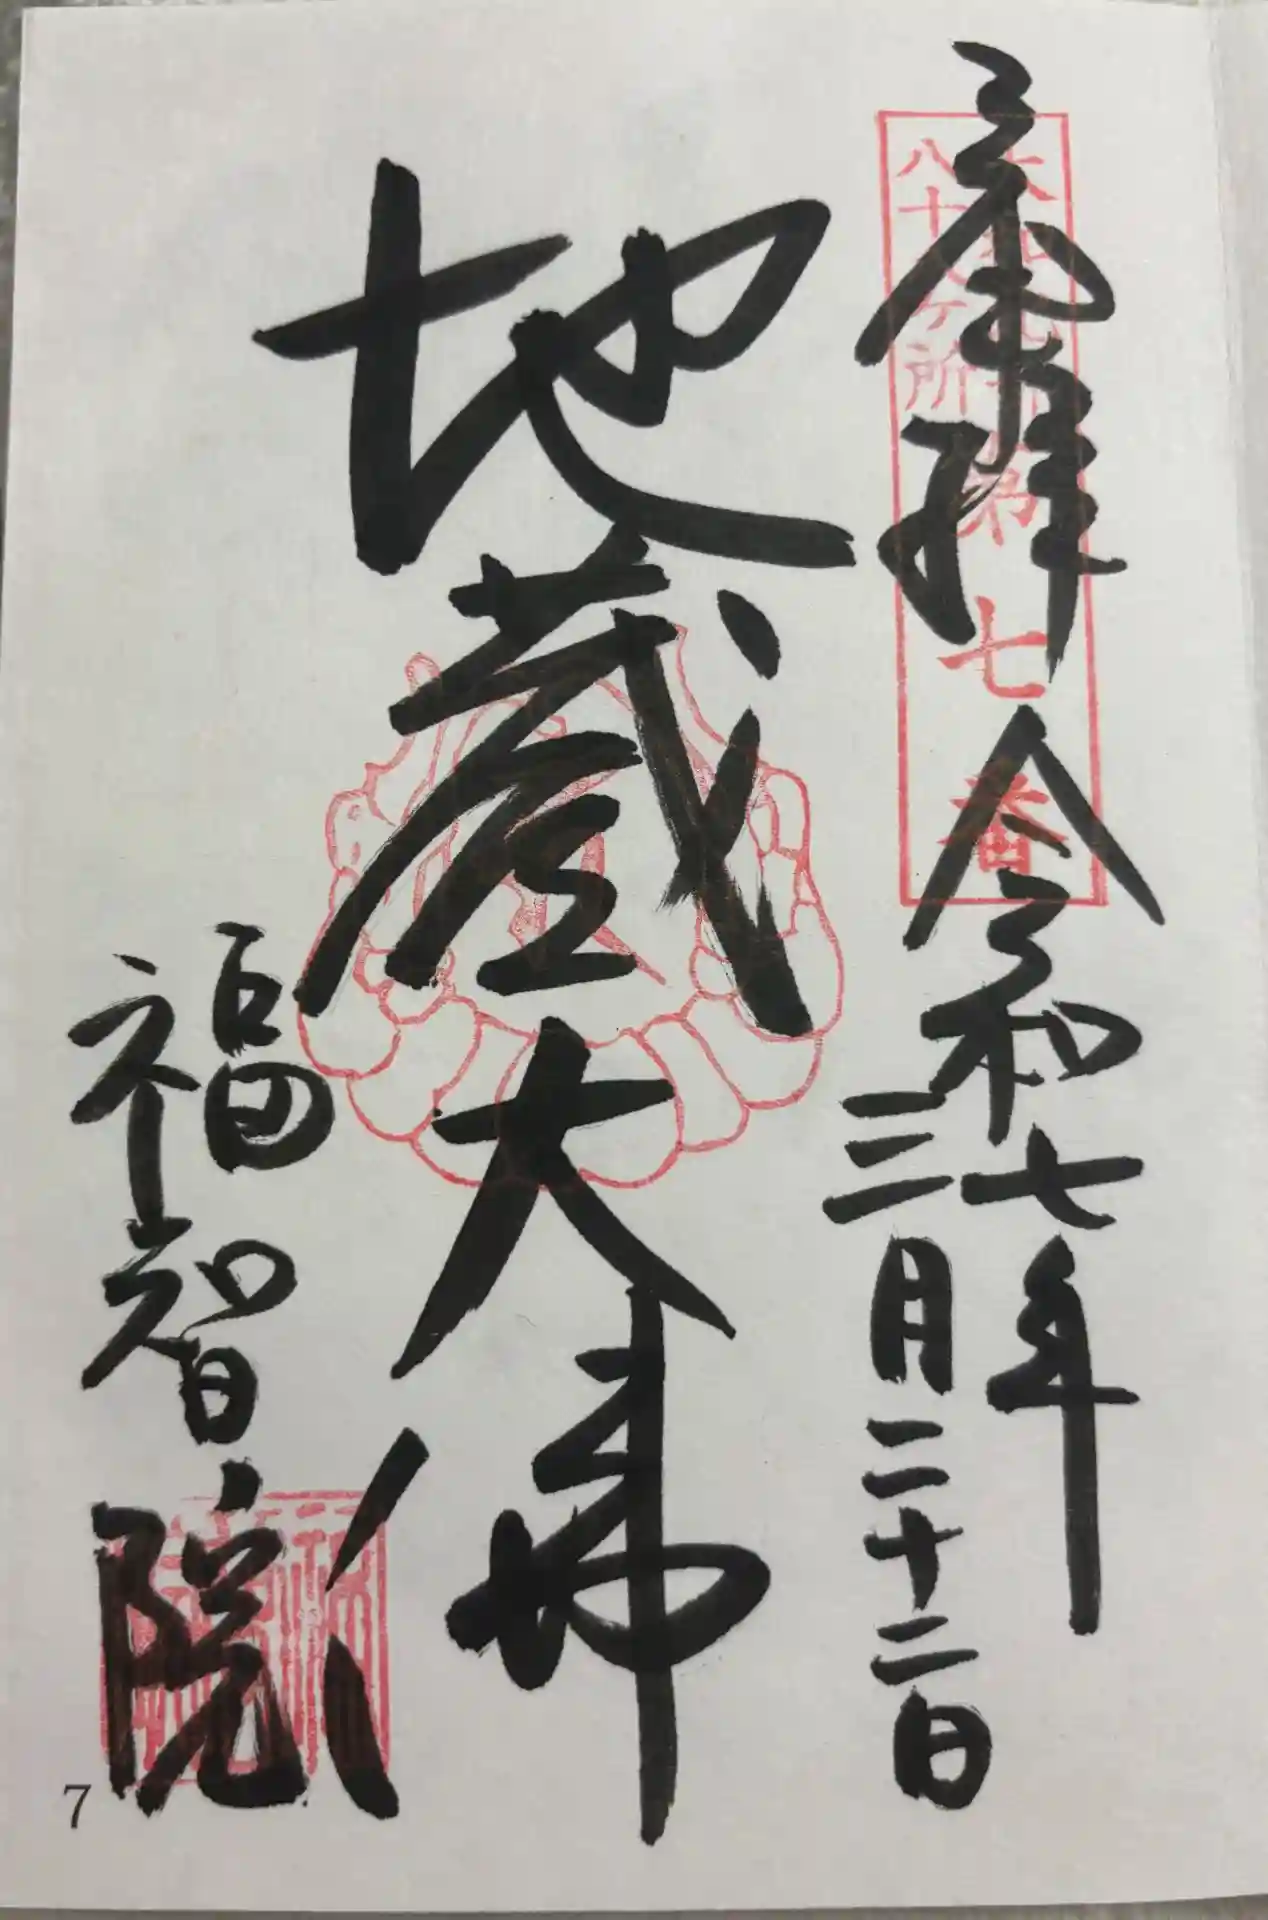 奉拝
令和七年
三月二十二日
大和北部
八十八ヶ所
第七番
地蔵大佛
福智院
7